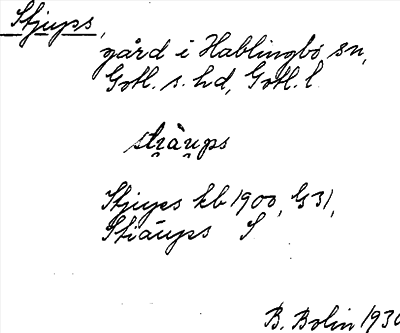 Stjups,
gård i Hablingbo sn,
Gotl. s. hd, Gotl. l.
Stjups kb 1900, G 31,
Stiäups S
B. Bolin 1930